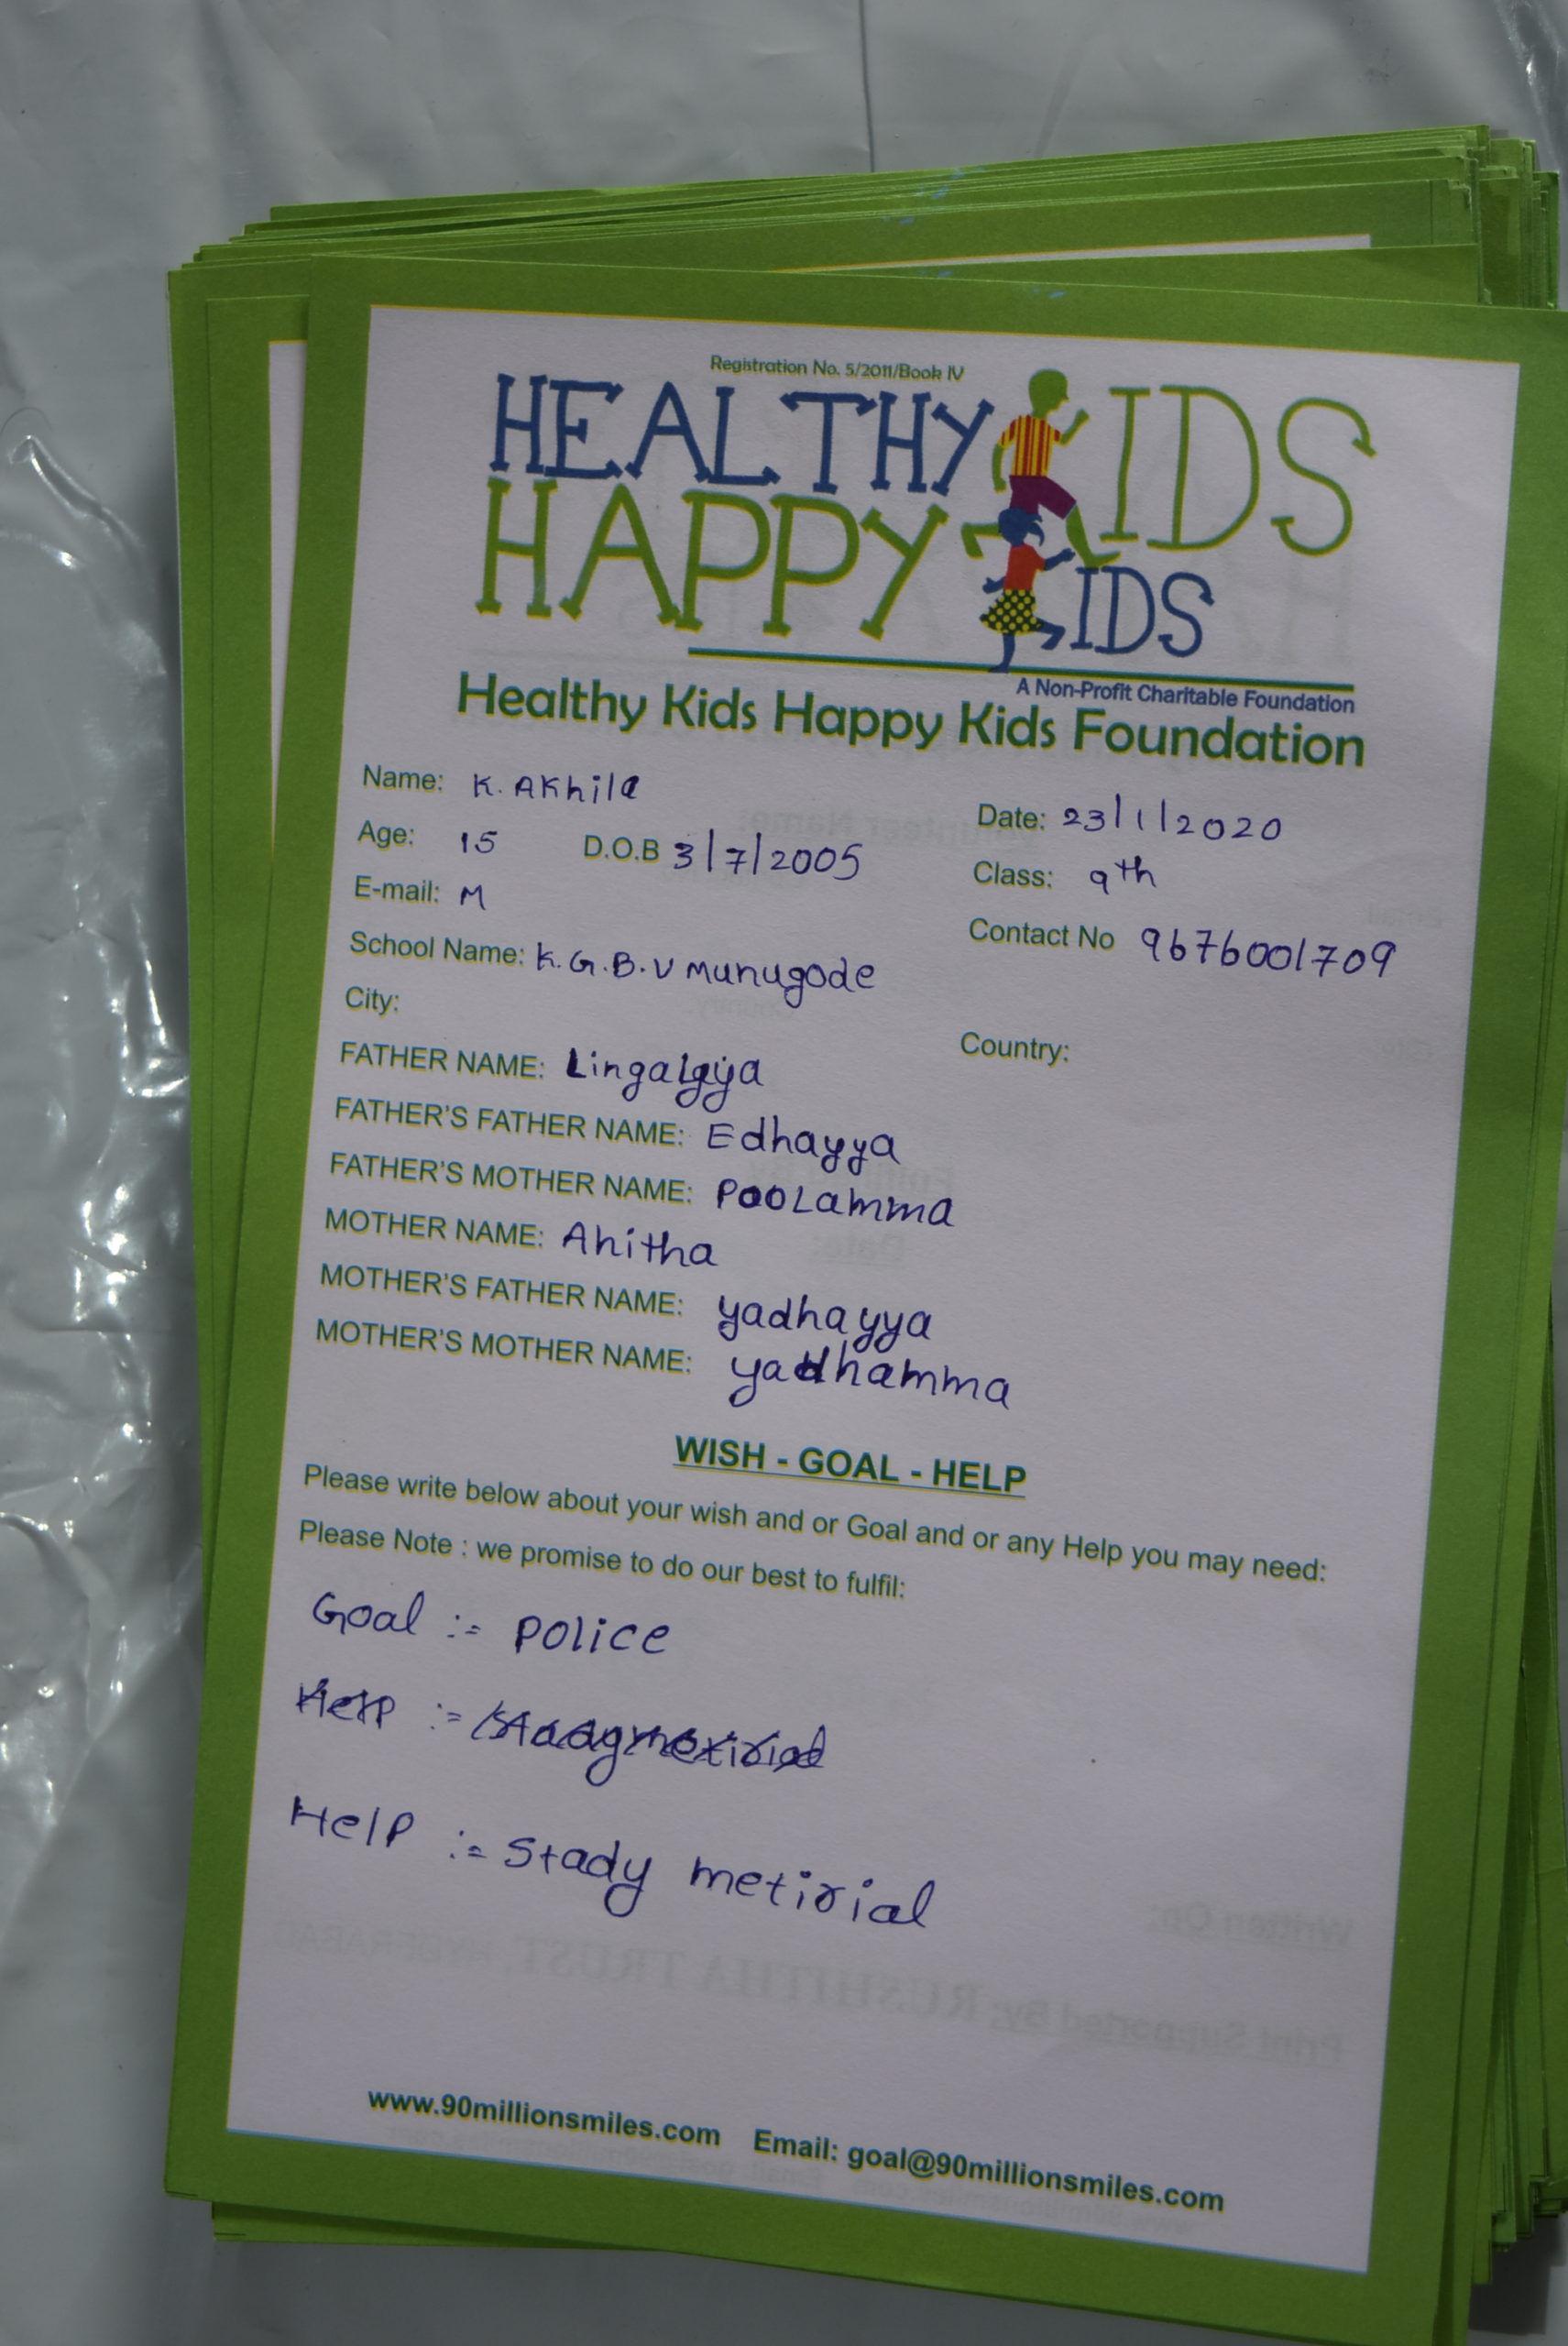 Registration No. 5/2011/Book IV
HEALTHY KIDS
HAPPY KIDS
A Non-Profit Charitable Foundation
Healthy Kids Happy Kids Foundation
Name: K. AKhila
Date: 23/1/2020
Age: 15 D.O.B 3/7/2005
Class: 9th
E-mail: M
Contact No 9676001709
School Name: K.G.B.V munugode
City:
Country:
FATHER NAME:
FATHER'S FATHER NAME: Edhayya
FATHER'S MOTHER NAME: POOLamma
MOTHER NAME: Anitha
MOTHER'S FATHER NAME: yadhayya
MOTHER'S MOTHER NAME: yadhamma
WISH - GOAL - HELP
Please write below about your wish and or Goal and or any Help you may need:
Please Note : we promise to do our best to fulfil:
Goal := police
Help :=
Help := Stady metirial
www.90millionsmiles.com Email: goal@90millionsmiles.com